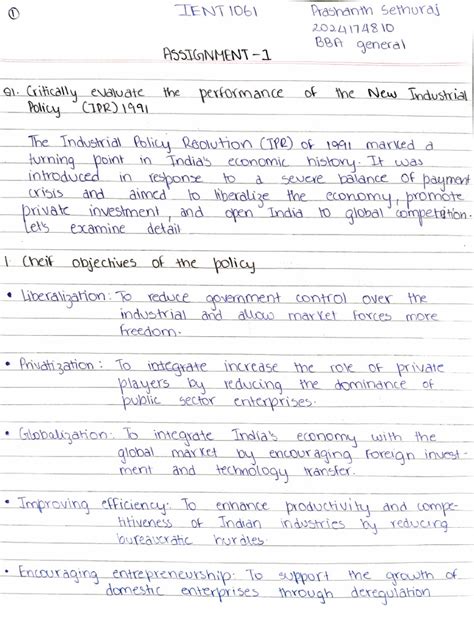 ①
IENT1061
Prashanth Sethuraj
2024174810
BBA general
ASSIGNMENT-1
Q1. Critically evaluate the performance of the New Industrial
Policy (IPR) 1991
The Industrial Policy Resolution (IPR) of 1991 marked a
turning point in India's economic history. It was
introduced in response to a severe balance of payment
crisis and aimed to liberalize the economy, promote
private investment, and open India to global competation.
let's examine detail
1. Cheif objectives of the policy
• Liberalization: To reduce government control over the
industrial and allow market forces more
freedom.
• Privatization: To integrate increase the role of private
players by reducing the dominance of
public sector enterprises.
• Globalization: To integrate India's economy with the
global market by encouraging foreign invest-
ment and technology transfer.
• Improving efficiency: To enhance productivity and compe-
titiveness of Indian industries by reducing
bureaucratic hurdles.
• Encouraging entrepreneurship: To support the growth of
domestic enterprises through deregulation